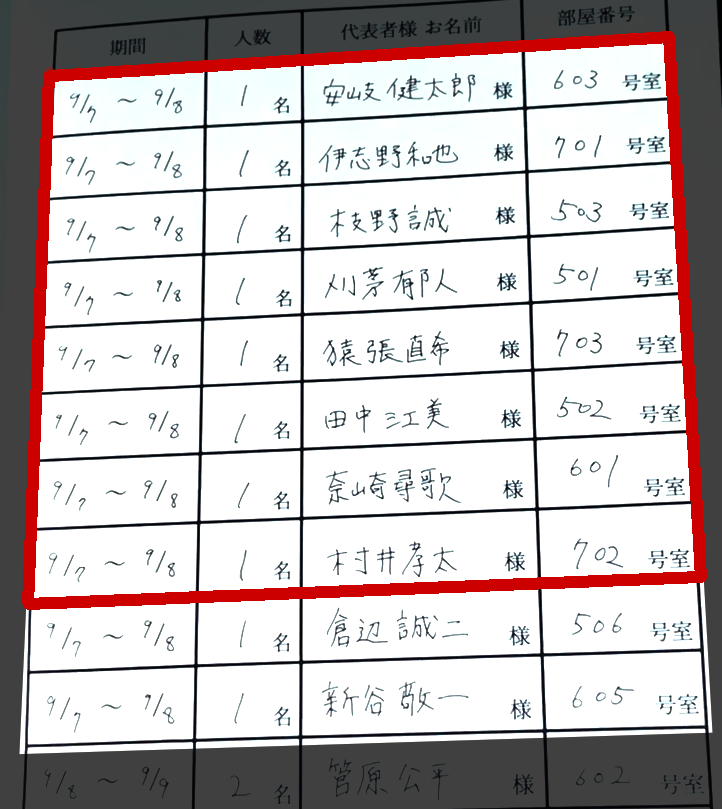 期間 人数 代表者様 お名前 部屋番号
9/7 ～ 9/8 1 名 安岐健太郎 様 603 号室
9/7 ～ 9/8 1 名 伊志野和也 様 701 号室
9/7 ～ 9/8 1 名 枝野誠 様 503 号室
9/7 ～ 9/8 1 名 刈茅有郁人 様 501 号室
9/7 ～ 9/8 1 名 猿張直希 様 703 号室
9/7 ～ 9/8 1 名 田中江美 様 502 号室
9/7 ～ 9/8 1 名 奈崎尋歌 様 601 号室
9/7 ～ 9/8 1 名 村井孝太 様 702 号室
9/7 ～ 9/8 1 名 倉辺誠二 様 506 号室
9/7 ～ 9/8 1 名 新谷敬一 様 605 号室
9/8 ～ 9/9 2 名 菅原公平 様 602 号室